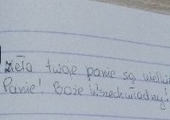 Dzieła twoje panie są wielkie
Panie! Boże wszechwładny!